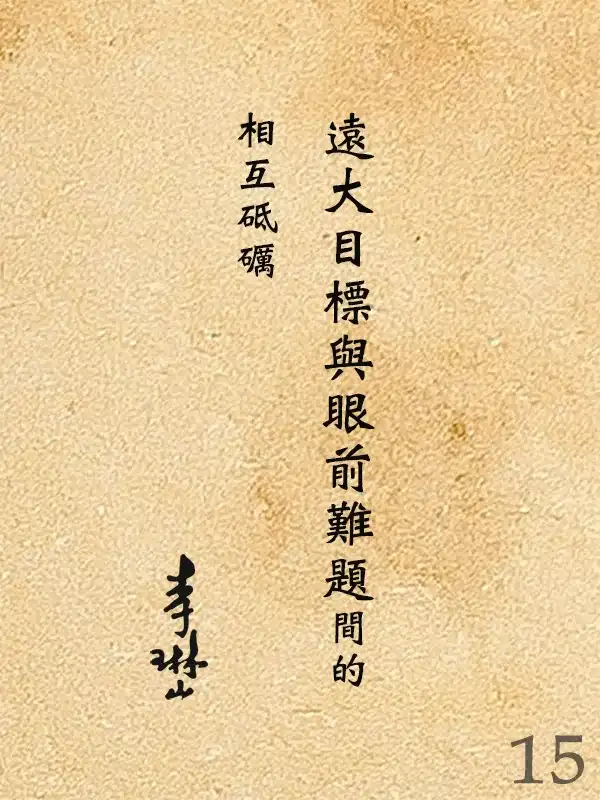 遠大目標與眼前難題間的
相互砥礪
李琳山
15